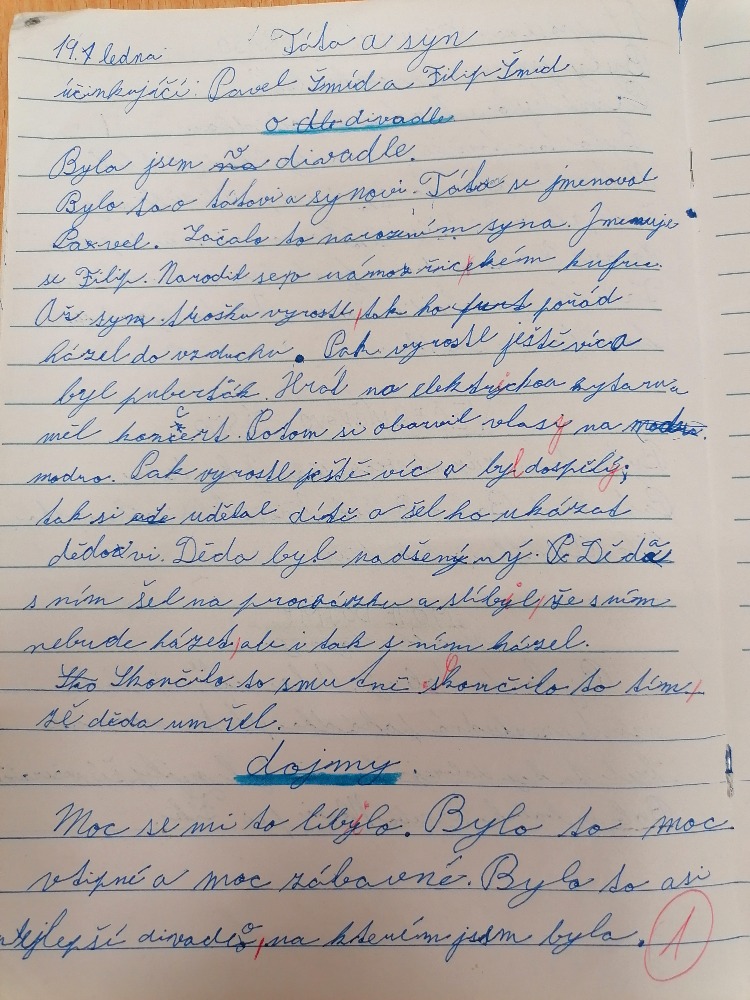 19.1 ledna Táta a syn
účinkující: Pavel Šmíd a Filip Šmíd
o divadle
Byla jsem v divadle.
Bylo to o tátovi a synovi. Táta se jmenoval
Pavel. Začalo to narozením syna. Jmenuje
se Filip. Narodil se v námořnickém kufru.
Až syn trošku vyrostl, tak ho furt pořád
házel do vzduchu. Pak vyrostl ještě víc a
byl puberťák. Hrál na elektrickou kytaru a
měl koncert. Potom si obarvil vlasy na
modro. Pak vyrostl ještě víc a byl dospělý,
tak si udělal dítě a šel ho ukázat
dědovi. Děda byl nadšený. Děda
s ním šel na procházku a slíbil, že s ním
nebude házet, ale i tak s ním házel.
Skončilo to smutně. Skončilo to tím,
že děda umřel.
dojmy
Moc se mi to líbilo. Bylo to moc
vtipné a moc zábavné. Bylo to asi
nejlepší divadlo, na kterém jsem byla. 1